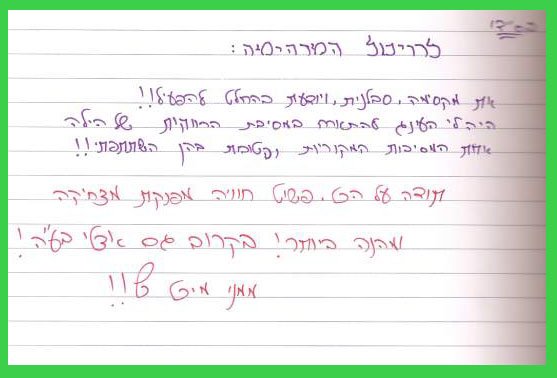 בס"ד
המדהימה:
את מקסימה, סבלנית, ויודעת בהחלט להפעיל!!
היה לי העונג להתארח במסיבת הרווקות של הילה
אחת המסיבות המקוריות והטובות בהן השתתפתי!!
תודה על הכל. פשוט חוויה מפנקת מצחיקה
ומהנה ביותר! בקרוב גם אצלי בע"ה!
ממני מיטל